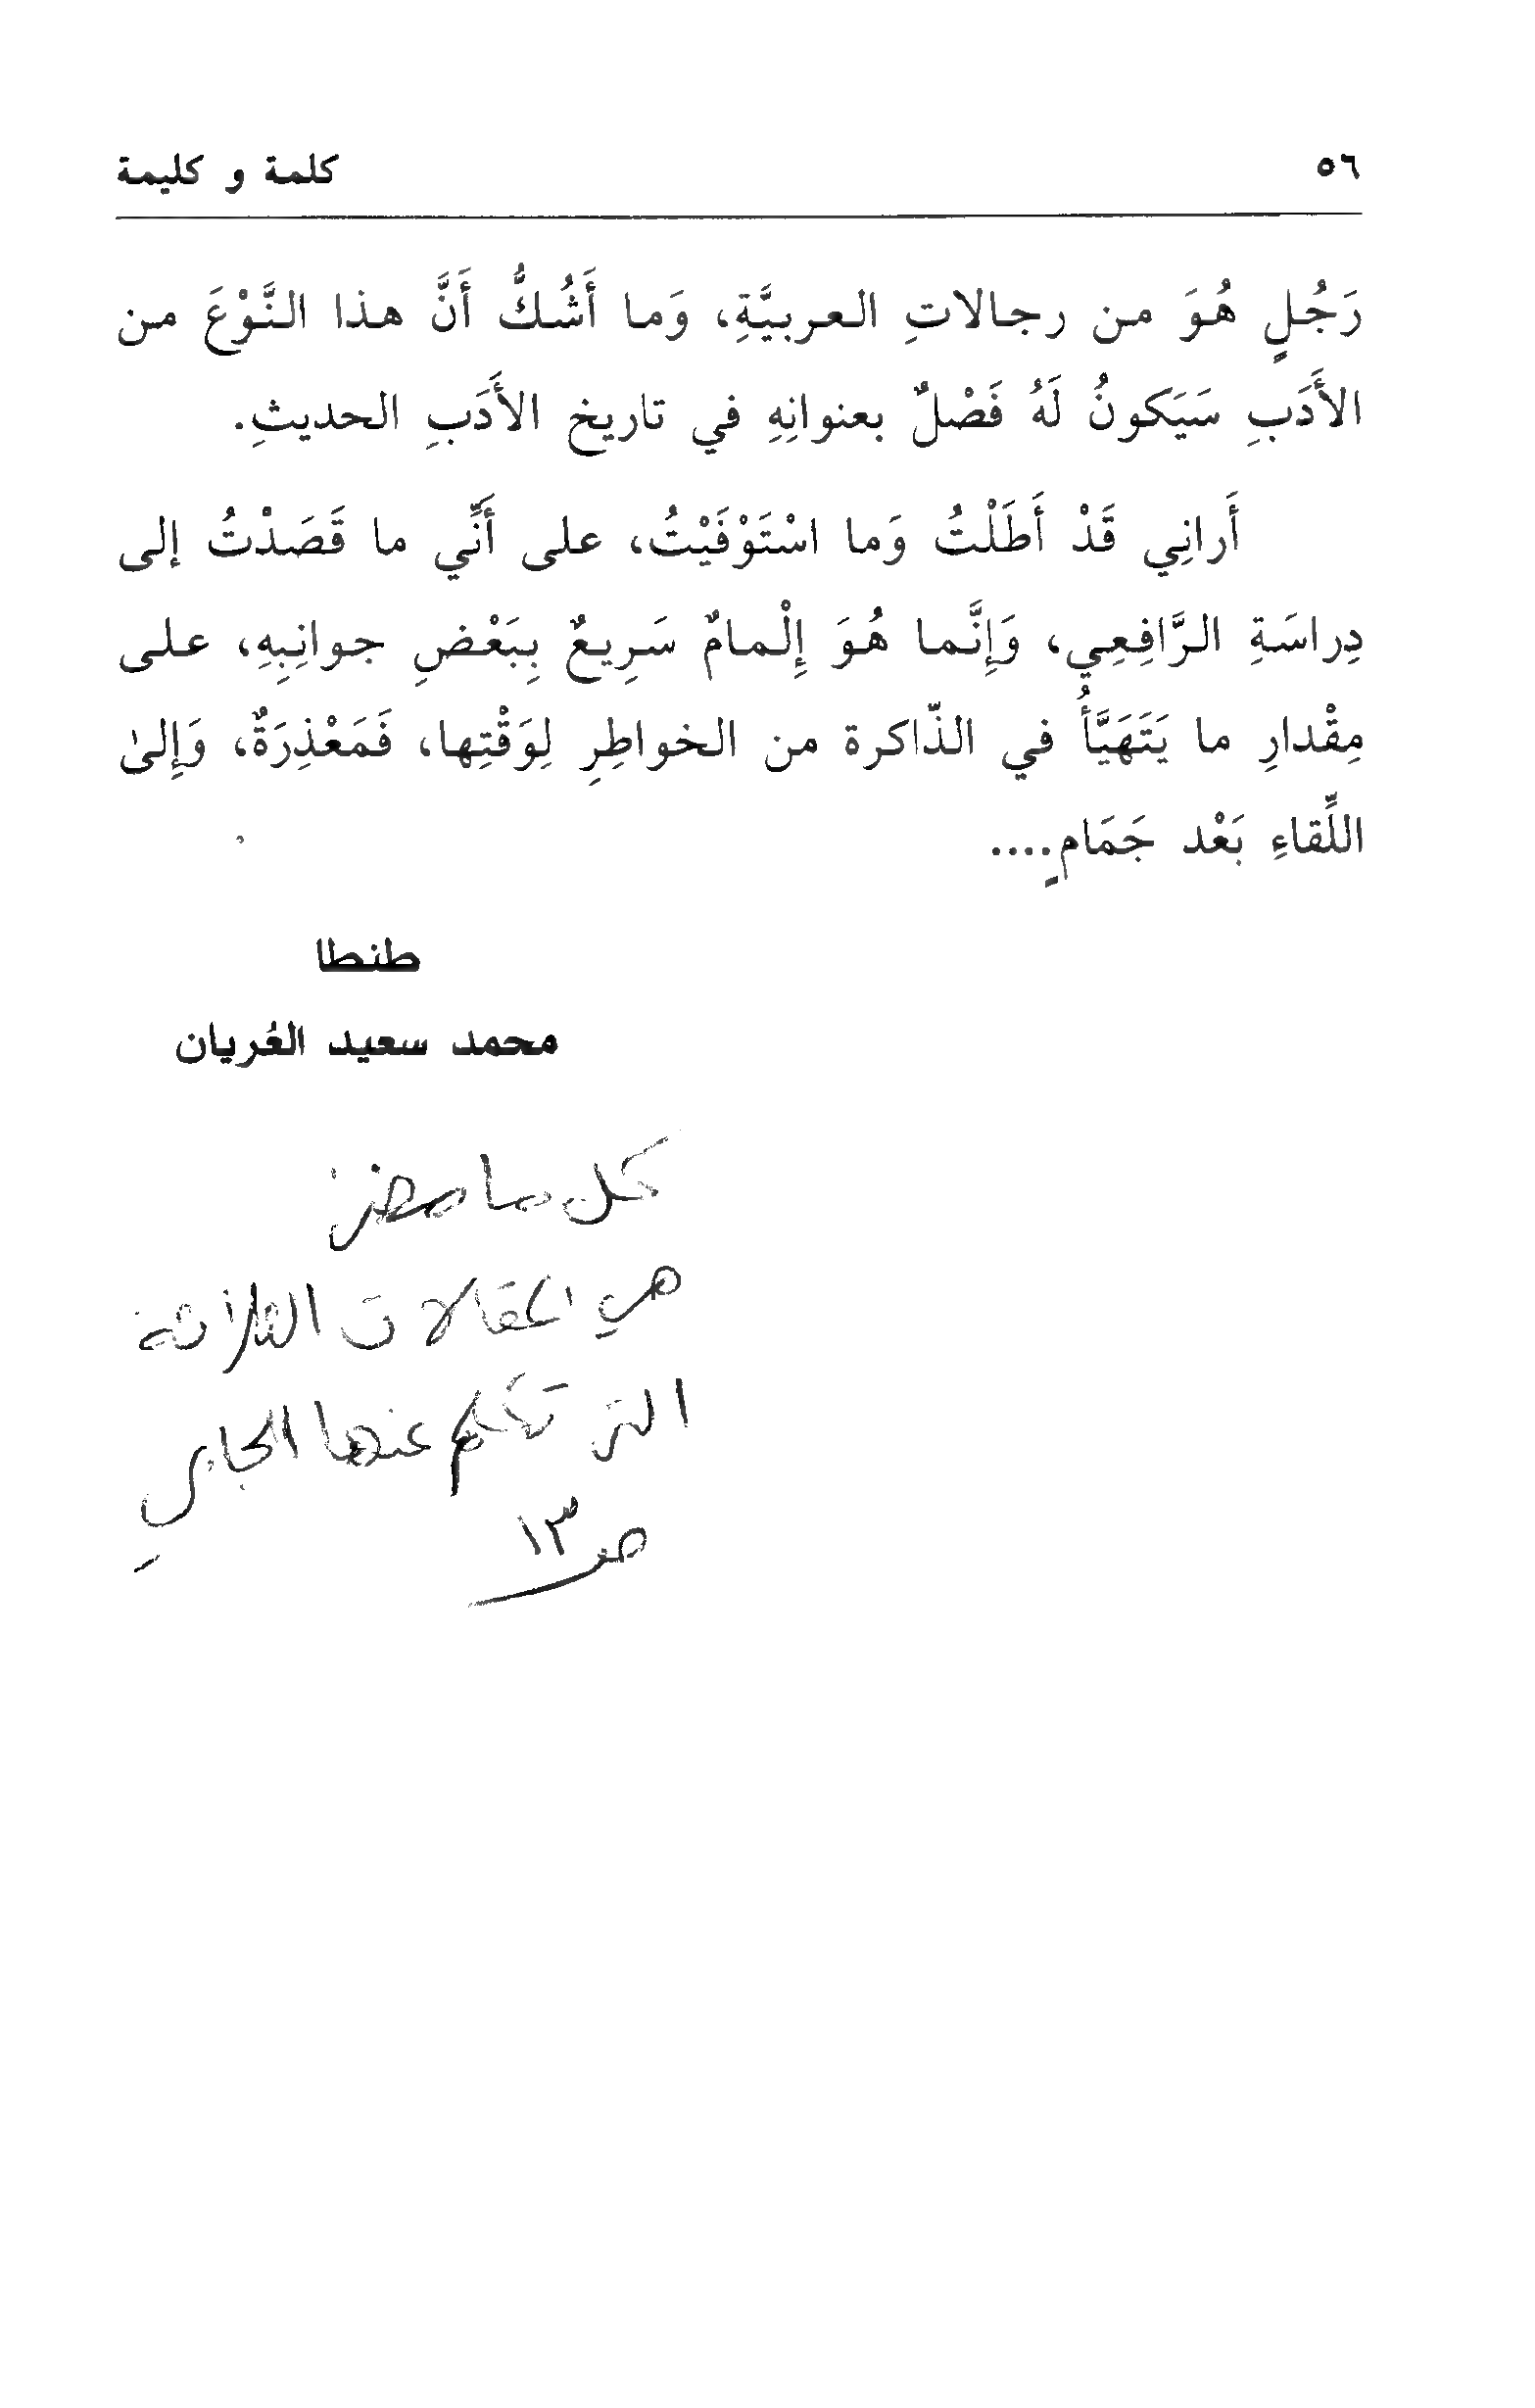 ٥٦
كلمة و كليمة
رَجُلٍ هُوَ من رجالاتِ العربيَّةِ، وَما أَشُكُّ أَنَّ هذا النَّوْعَ من
الأَدَبِ سَيَكونُ لَهُ فَصْلٌ بعنوانِهِ في تاريخ الأَدَبِ الحديثِ.
أَرانِي قَدْ أَطَلْتُ وَما اسْتَوْفَيْتُ، على أَنِّي ما قَصَدْتُ إلى
دِراسَةِ الرَّافِعِي، وَإِنَّما هُوَ إِلْمامٌ سَرِيعٌ بِبَعْضِ جوانِبِهِ، على
مِقْدارِ ما يَتَهَيَّأُ في الذّاكرة من الخواطِرِ لِوَقْتِها، فَمَعْذِرَةٌ، وَإِلىٰ
اللِّقاءِ بَعْد جَمَامٍ....
طنطا
محمد سعيد العُريان
كل ما مضى
هي المقالات الثلاثة
التي تكلم عنها الجابي
ص ١٣